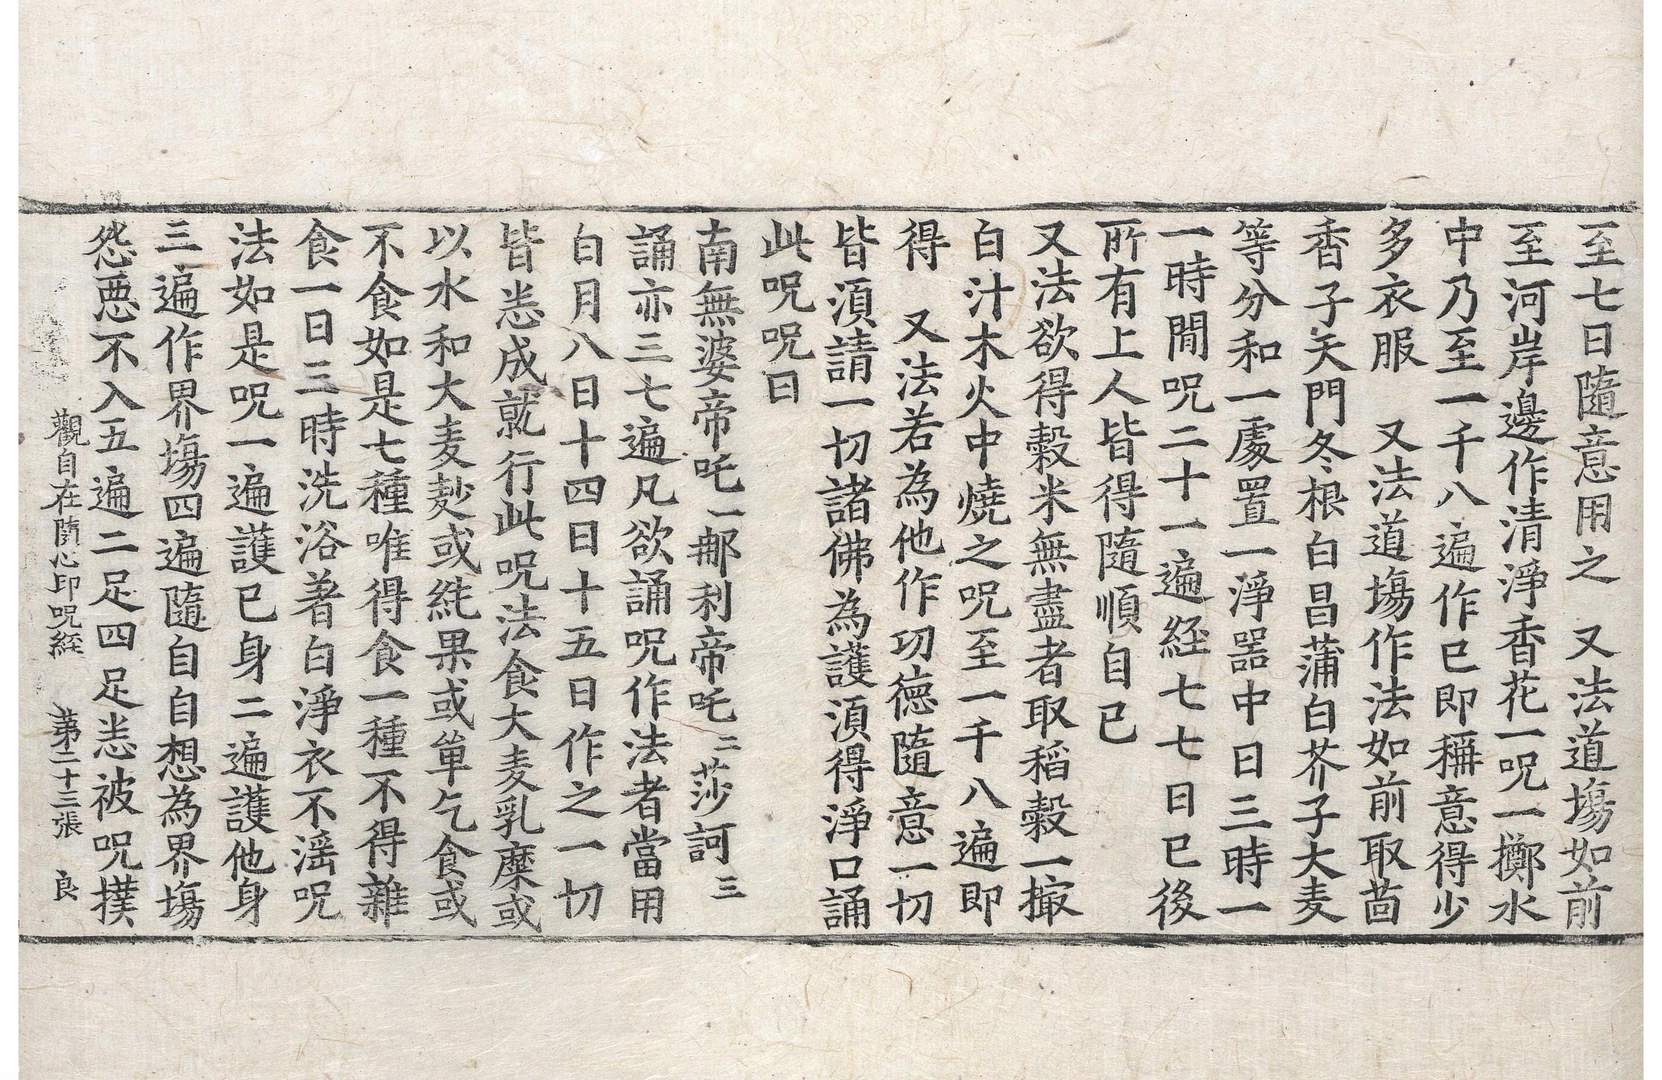 至七日隨意用之　又法道場如前
至河岸邊作清淨香花一呪一擲水
中乃至一千八遍作已即稱意得少
多衣服　又法道場作法如前取茴
香子天門冬根白昌蒲白芥子大麦
等分和一處置一淨器中日三時一
一時間呪二十一遍経七七日已後
所有上人皆得隨順自已
又法欲得穀米無盡者取稻穀一撮
白汁木火中燒之呪至一千八遍即
得　又法若為他作功德隨意一切
皆須請一切諸佛為護須得淨口誦
此呪呪曰
南無婆帝吒一郍利帝吒二莎訶三
誦亦三七遍凡欲誦呪作法者當用
白月八日十四日十五日作之一切
皆悉成就行此呪法食大麦乳糜或
以水和大麦麨或純果或單乞食或
不食如是七種唯得食一種不得雜
食一日三時洗浴著白淨衣不婬呪
法如是呪一遍護已身二遍護他身
三遍作界場四遍隨自自想為界場
怨惡不入五遍二足四足悉被呪撲
觀自在隨心印呪経　第二十三張　良